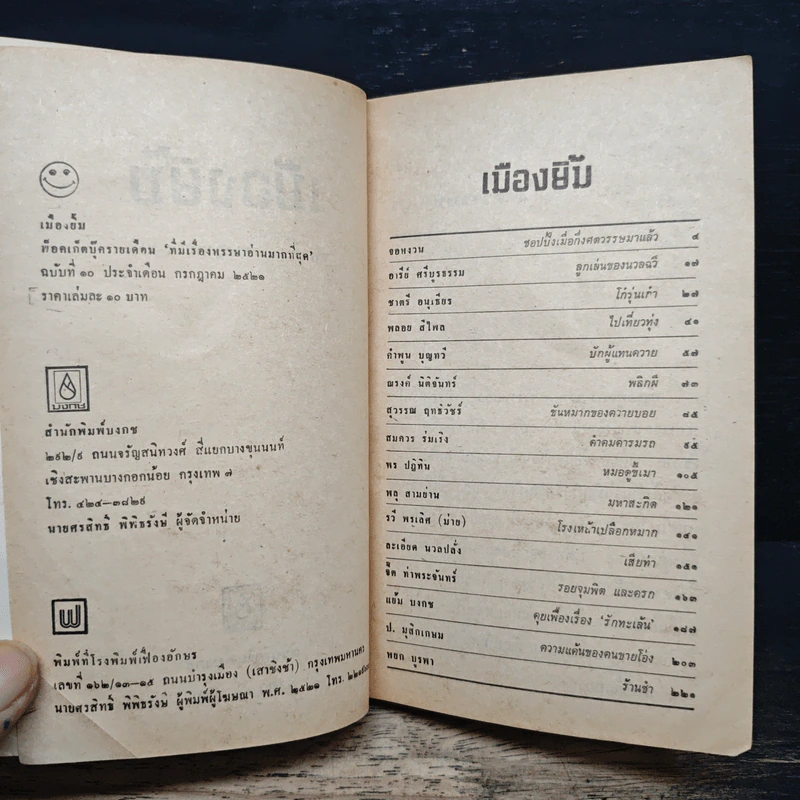 เมืองยิ้ม
พ็อคเก็ตบุ๊ครายเดือน ‘ที่มีเรื่องหรรษาอ่านมากที่สุด’
ฉบับที่ ๑๐ ประจำเดือน กรกฎาคม ๒๕๒๑
ราคาเล่มละ ๑๐ บาท
บงกช
สำนักพิมพ์บงกช
๒๙๒/๙ ถนนจรัญสนิทวงศ์ สี่แยกบางขุนนนท์
เชิงสะพานบางกอกน้อย กรุงเทพ ๗
โทร. ๔๒๔—๓๘๒๙
นายศรสิทธิ์ พิพิธรังษี ผู้จัดจำหน่าย
พิมพ์ที่โรงพิมพ์เฟื่องอักษร
เลขที่ ๑๖๒/๑๓—๑๕ ถนนบำรุงเมือง (เสาชิงช้า) กรุงเทพมหานคร
นายศรสิทธิ์ พิพิธรังษี ผู้พิมพ์ผู้โฆษณา พ.ศ. ๒๕๒๑ โทร.
เมืองยิ้ม
จอหงวน ชอปปิ้งเมื่อกึ่งศตวรรษมาแล้ว ๔
อารีย์ ศรีบูรธรรม ลูกเล่นของนวลฉวี ๑๗
ชาตรี อนุเธียร โก๋รุ่นเก๋า ๒๗
พลอย สีไพล ไปเที่ยวทุ่ง ๔๑
คำพูน บุญทวี บักผู้แทนควาย ๕๗
ณรงค์ นิติจันทร์ พลิกผี ๗๓
สุวรรณ ฤทธิวัชร์ ขันหมากของควายบอย ๘๕
สมควร ร่มเริง คำคมคารมรถ ๙๕
พร ปฏิทิน หมอดูขี้เมา ๑๐๕
พลุ สามย่าน มหาสะกิด ๑๒๑
รวี พรเลิศ (ม่าย) โรงเหล้าเปลือกหมาก ๑๔๑
ละเอียด นวลปลั่ง เสียท่า ๑๕๑
จี๊ด ท่าพระจันทร์ รอยจุมพิต และครก ๑๖๓
แย้ม บงกช คุยเฟื่องเรื่อง ‘รักทะเล้น’ ๑๘๗
ป. มุสิกเกษม ความแค้นของคนขายโอ่ง ๒๐๓
พยก บูรพา ร้านชำ ๒๒๑